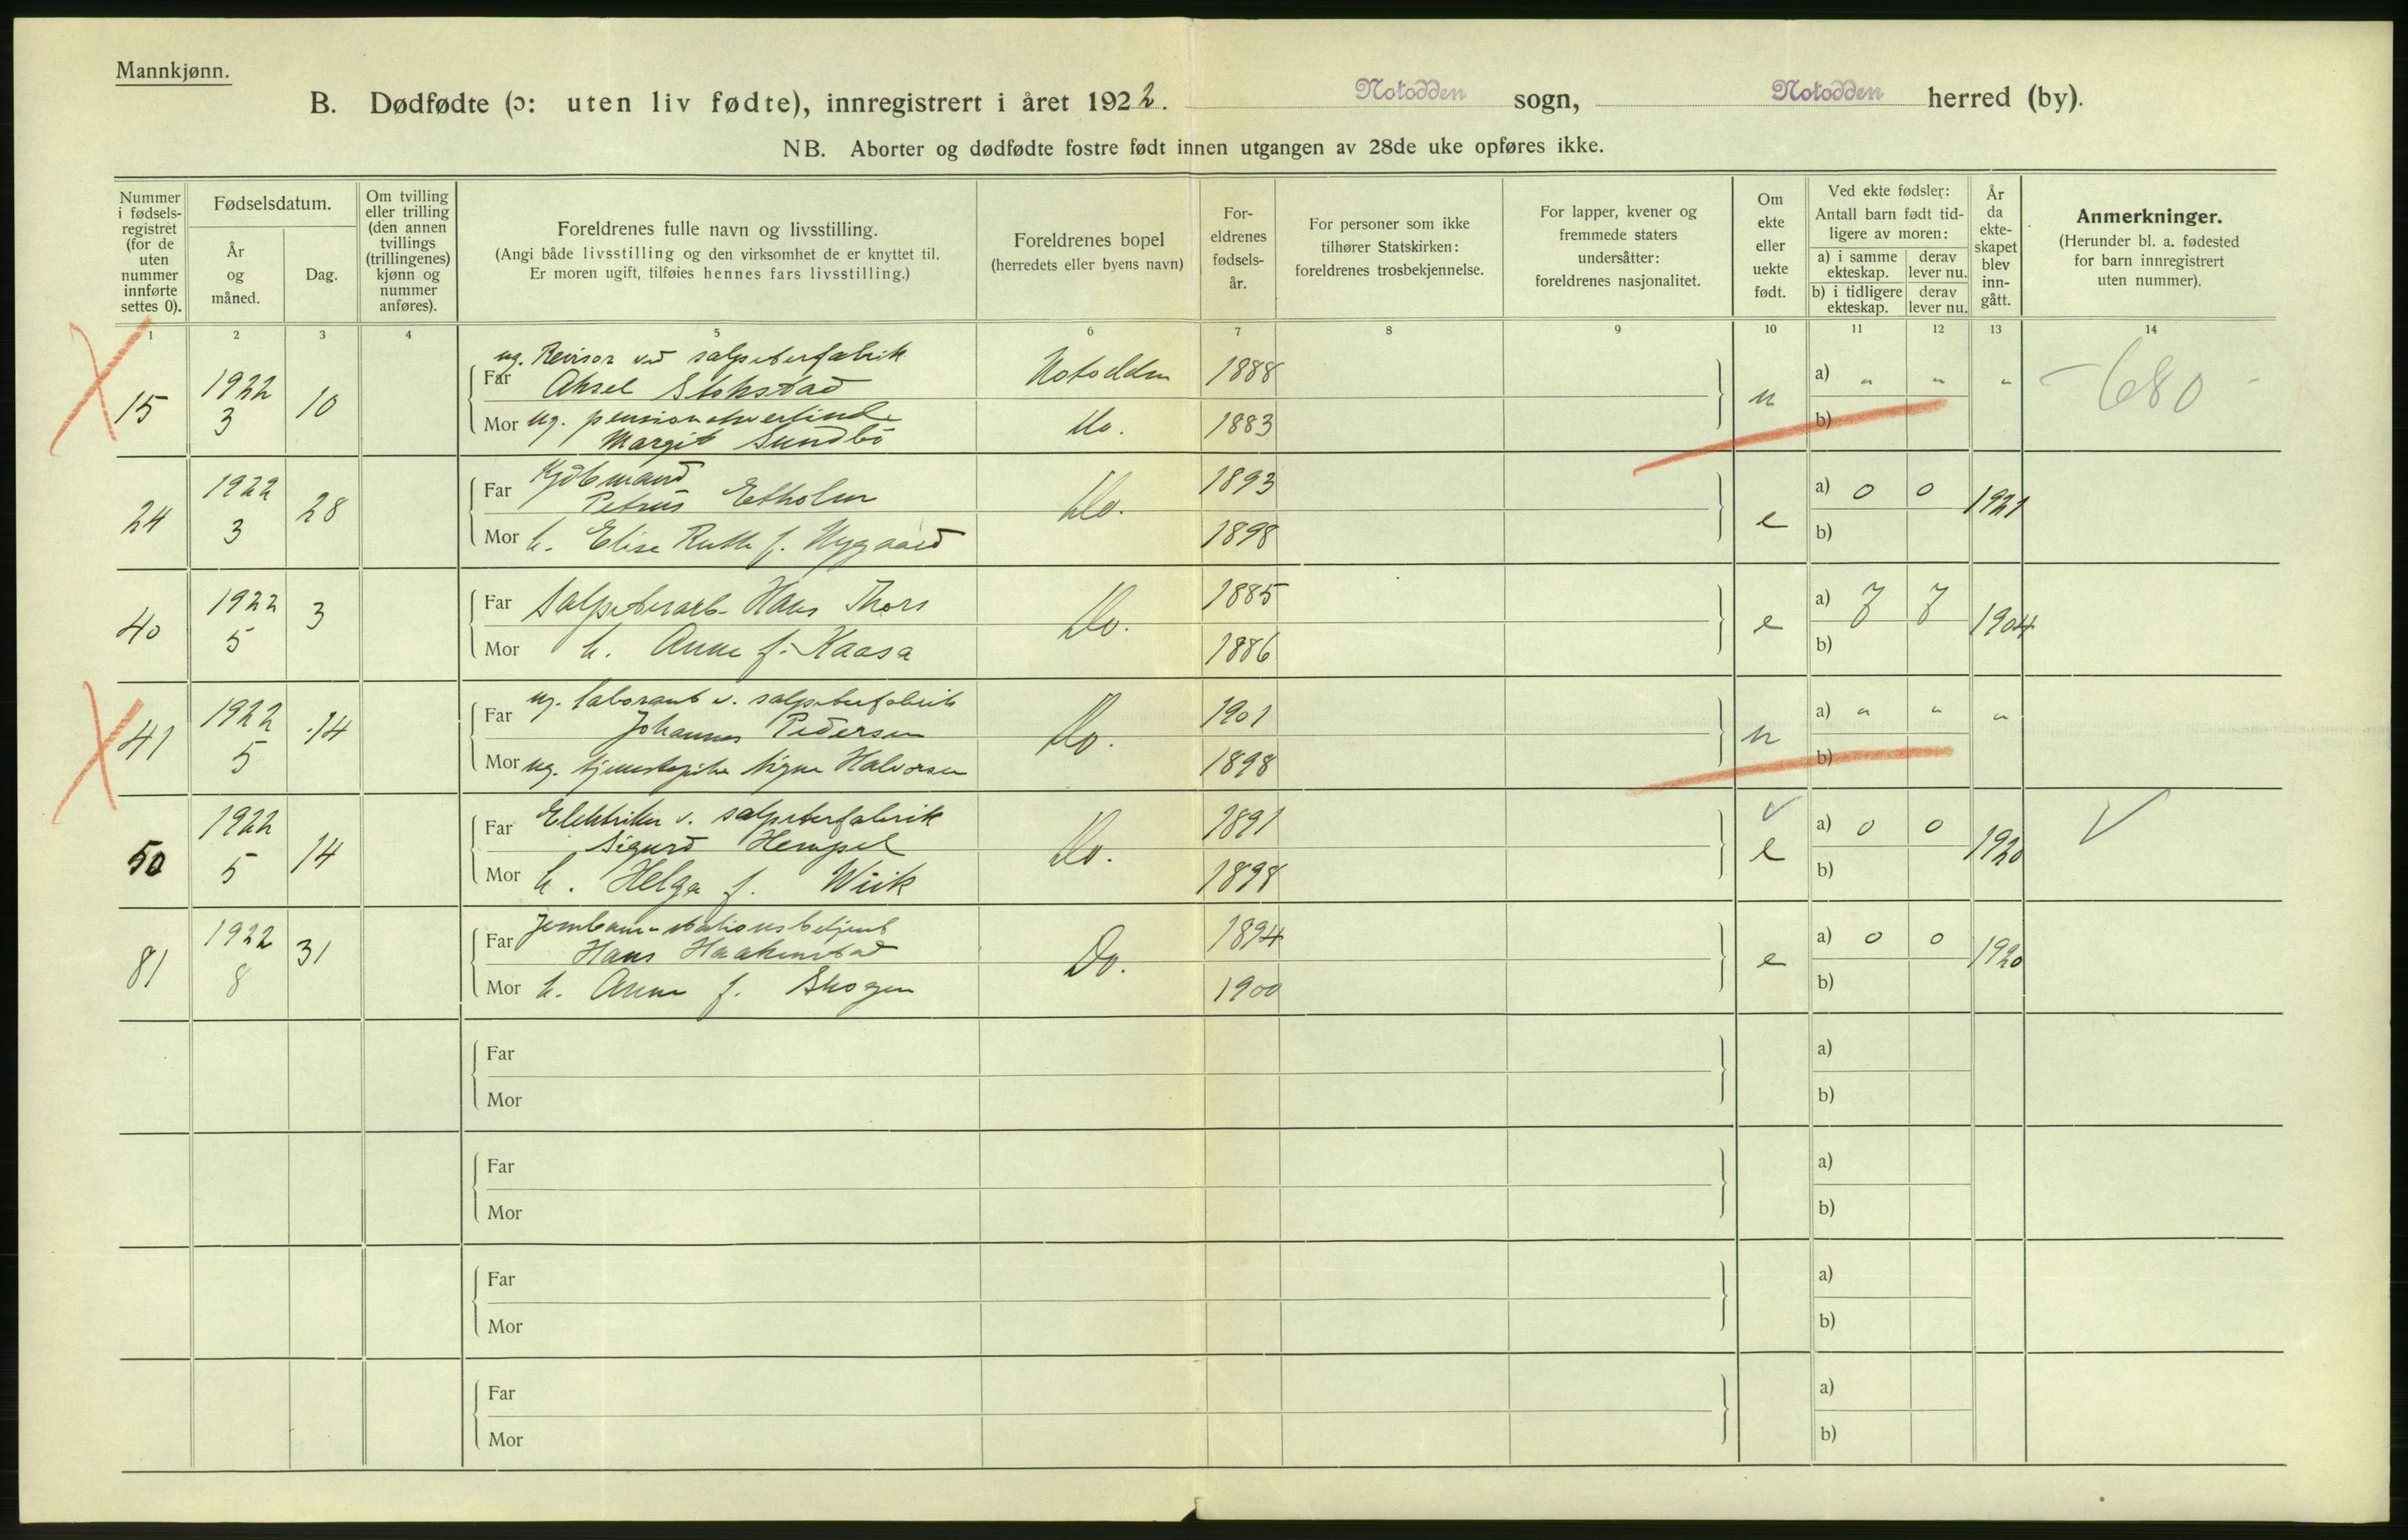 Mannkjønn.
B. Dødfødte (ɔ: uten liv fødte), innregistrert i året 1922. Notodden sogn, Notodden herred (by).
NB. Aborter og dødfødte fostre født innen utgangen av 28de uke opføres ikke.
Nummer i fødsels-registret (for de uten nummer innførte settes 0).
Fødselsdatum.
År og måned.
Dag.
Om tvilling eller trilling (den annen tvillings (trillingenes) kjønn og nummer anføres).
Foreldrenes fulle navn og livsstilling.
(Angi både livsstilling og den virksomhet de er knyttet til.
Er moren ugift, tilføies hennes fars livsstilling.)
Foreldrenes bopel
(herredets eller byens navn)
For-eldrenes fødsels-år.
For personer som ikke tilhører Statskirken: foreldrenes trosbekjennelse.
For lapper, kvener og fremmede staters undersåtter: foreldrenes nasjonalitet.
Om ekte eller uekte født.
Ved ekte fødsler:
Antall barn født tid-ligere av moren:
a) i samme ekteskap. derav lever nu.
b) i tidligere ekteskap. derav lever nu.
År da ekte-skapet blev inn-gått.
Anmerkninger.
(Herunder bl. a. fødested for barn innregistrert uten nummer).
1 2 3 4 5 6 7 8 9 10 11 12 13 14
ug. Revisor ved salpeterfabrik
15 1922 3 10 Far Aksel Stokstad Notodden 1888 u a) " " " 680
Mor ug. pensionatvertinde Do. 1883 b)
Margit Sundbö
Kjøbmand
24 1922 3 28 Far Petrus Etholm Do. 1893 e a) 0 0 1921
Mor h. Elise Ruth f. Nygaard 1898 b)
40 1922 5 3 Far Salpeterarb. Hans Thors Do. 1885 e a) 7 7 1904
Mor h. Anne f. Kaasa 1886 b)
ug. laborant v. salpeterfabrik
41 1922 5 14 Far Johannes Pedersen Do. 1901 u a) " " "
Mor ug. tjenestepike Signe Halvorsen 1898 b)
Elektriker v. salpeterfabrik
50 1922 5 14 Far Sigurd Hempel Do. 1891 e a) 0 0 1920
Mor h. Helga f. Wiik 1898 b)
Jernban-stationsbetjent
81 1922 8 31 Far Hans Haakenstad Do. 1894 e a) 0 0 1920
Mor h. Anne f. Skogen 1900 b)
Far a)
Mor b)
Far a)
Mor b)
Far a)
Mor b)
Far a)
Mor b)